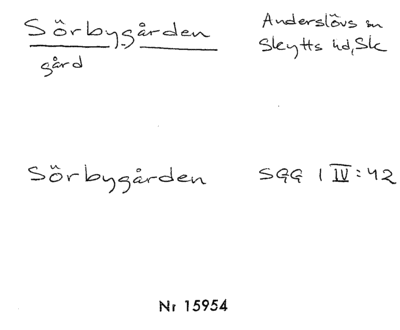 Sörbygården
Anderslövs sn
Skytts hd, Sk
gård
Sörbygården
SGG 1 IV:42
Nr 15954